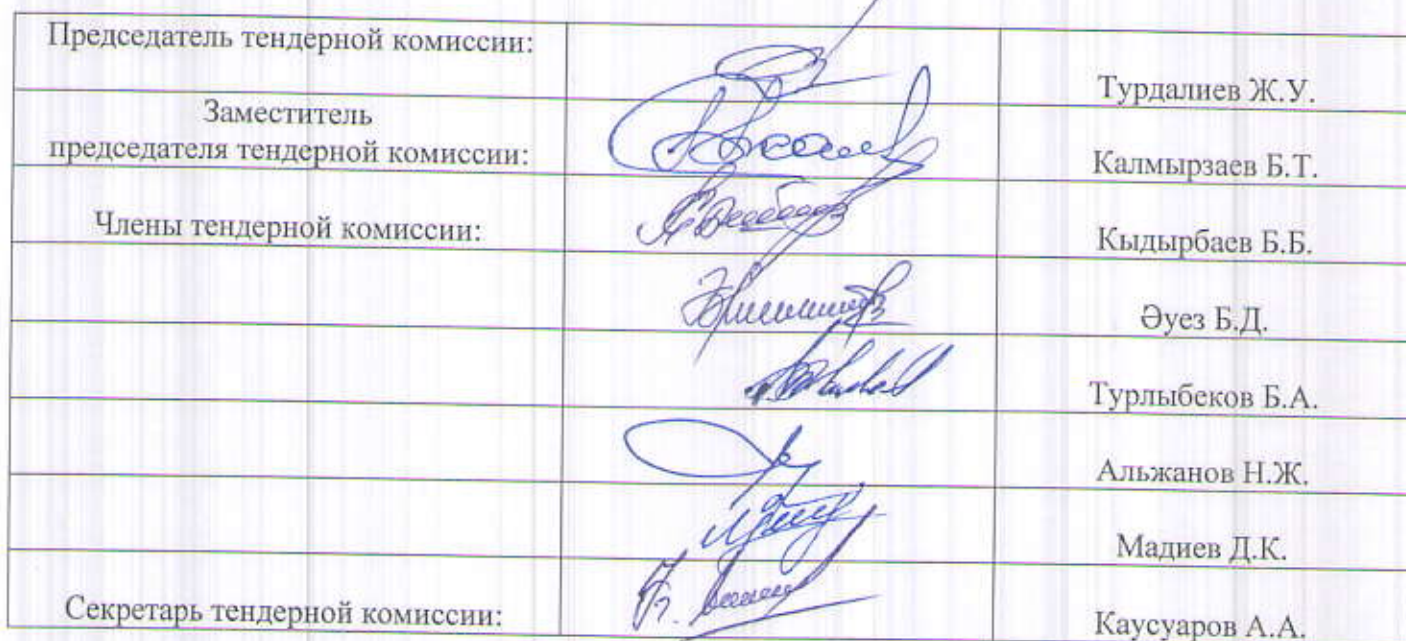 Председатель тендерной комиссии:
Турдалиев Ж.У.
Заместитель
председателя тендерной комиссии:
Калмырзаев Б.Т.
Члены тендерной комиссии:
Кыдырбаев Б.Б.
Әуез Б.Д.
Турлыбеков Б.А.
Альжанов Н.Ж.
Мадиев Д.К.
Секретарь тендерной комиссии:
Каусуаров А.А.